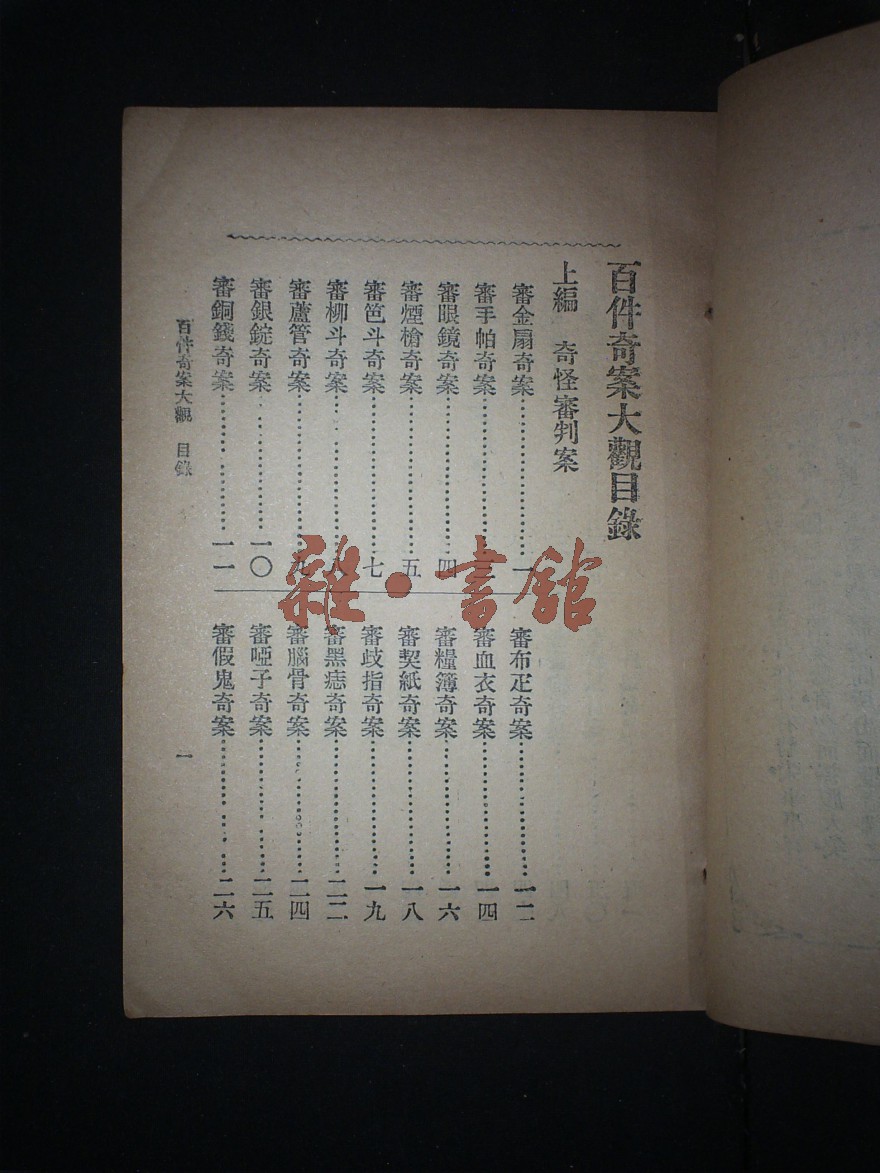 百件奇案大觀目錄
上編 奇怪審判案
審金扇奇案……………一
審手帕奇案……………
審眼鏡奇案……………四
審煙槍奇案……………五
審笆斗奇案……………七
審柳斗奇案……………八
審蘆管奇案……………九
審銀錠奇案……………一〇
審銅錢奇案……………一一
審布疋奇案……………一二
審血衣奇案……………一四
審糧簿奇案……………一六
審契紙奇案……………一八
審歧指奇案……………一九
審黑痣奇案……………二二
審腦骨奇案……………二四
審啞子奇案……………二五
審假鬼奇案……………二六
百件奇案大觀 目錄
一
雜·書館